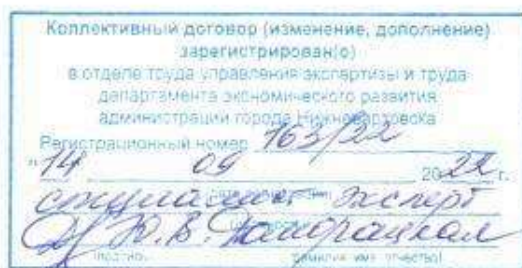 Коллективный договор (изменение, дополнение)
зарегистрирован(о)
в отделе труда управления экспертизы и труда
департамента экономического развития
администрации города Нижневартовска
Регистрационный номер 163/22
"14 09 2022 г.
специалист-эксперт
Ю.В.
(подпись, фамилия, имя, отчество)